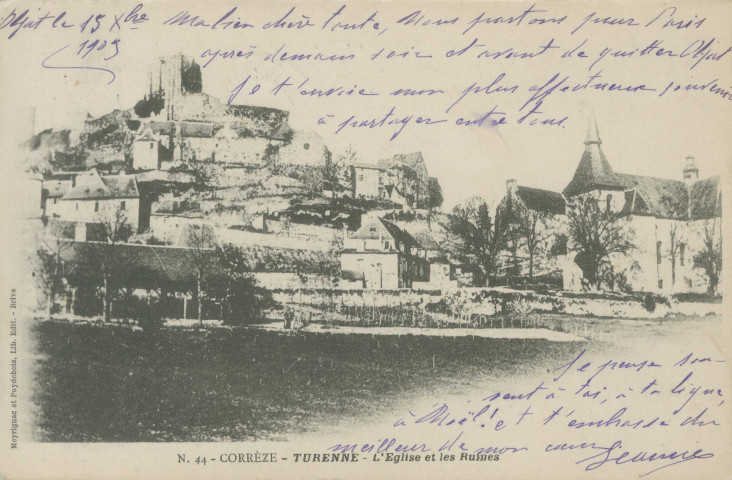 Objat le 15 Xbre
1903
Ma bien chère Toute, Nous partons pour Paris
après demain soir et avant de quitter Objat
je t'envoie mon plus affectueux souvenir
à partager entre tous.
Je pense sou-
vent à toi, à ta ligue,
à Noël! et t'embrasse du
meilleur de mon cœur.
Jeanne
Meyrignac et Puydebois, Lib. Edit. - Brive
N. 44 - CORRÈZE - TURENNE - L'Eglise et les Ruines